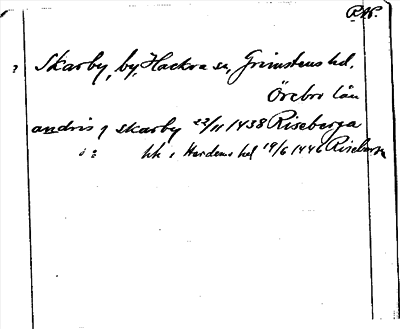 RAP.
? Skarby, by, Hackva sn, Grimstens hd.
Örebro län
andris j skarby 22/11 1438 Riseberga
hk i Hardemo hd 19/6 1446 Riseberga